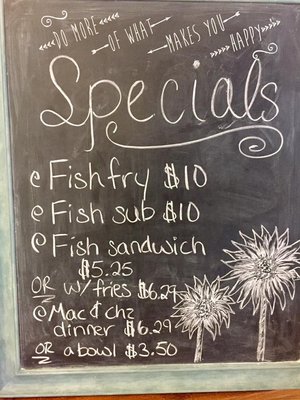 DO MORE OF WHAT MAKES YOU HAPPY
Specials
Fish fry $10
Fish sub $10
Fish sandwich
$5.25
OR w/ fries $6.29
Mac & chz
dinner $6.29
OR a bowl $3.50